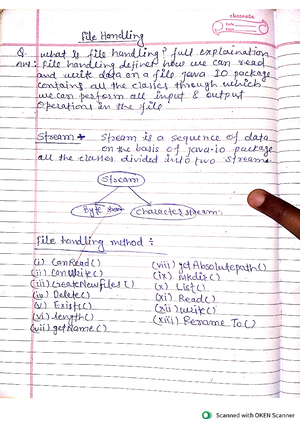 classmate
Date
Page
File Handling
Q. what is file handling? full explaination
Ans: file handling defines how we can read
and write data on a file java IO package
contains all the classes through which
we can perform all input & output
Operations in the file.
Stream → Stream is a sequence of data
on the basis of java.io package
all the classes divided into two streams
Stream
Byte stream character stream
File handling method :
(i) CanRead()
(ii) CanWrite()
(iii) CreateNewFiles()
(iv) Delete()
(v) Exists()
(vi) length()
(vii) getName()
(viii) getAbsolutepath()
(ix) mkdir()
(x) List()
(xi) Read()
(xii) write()
(xiii) Rename To()
Scanned with OKEN Scanner